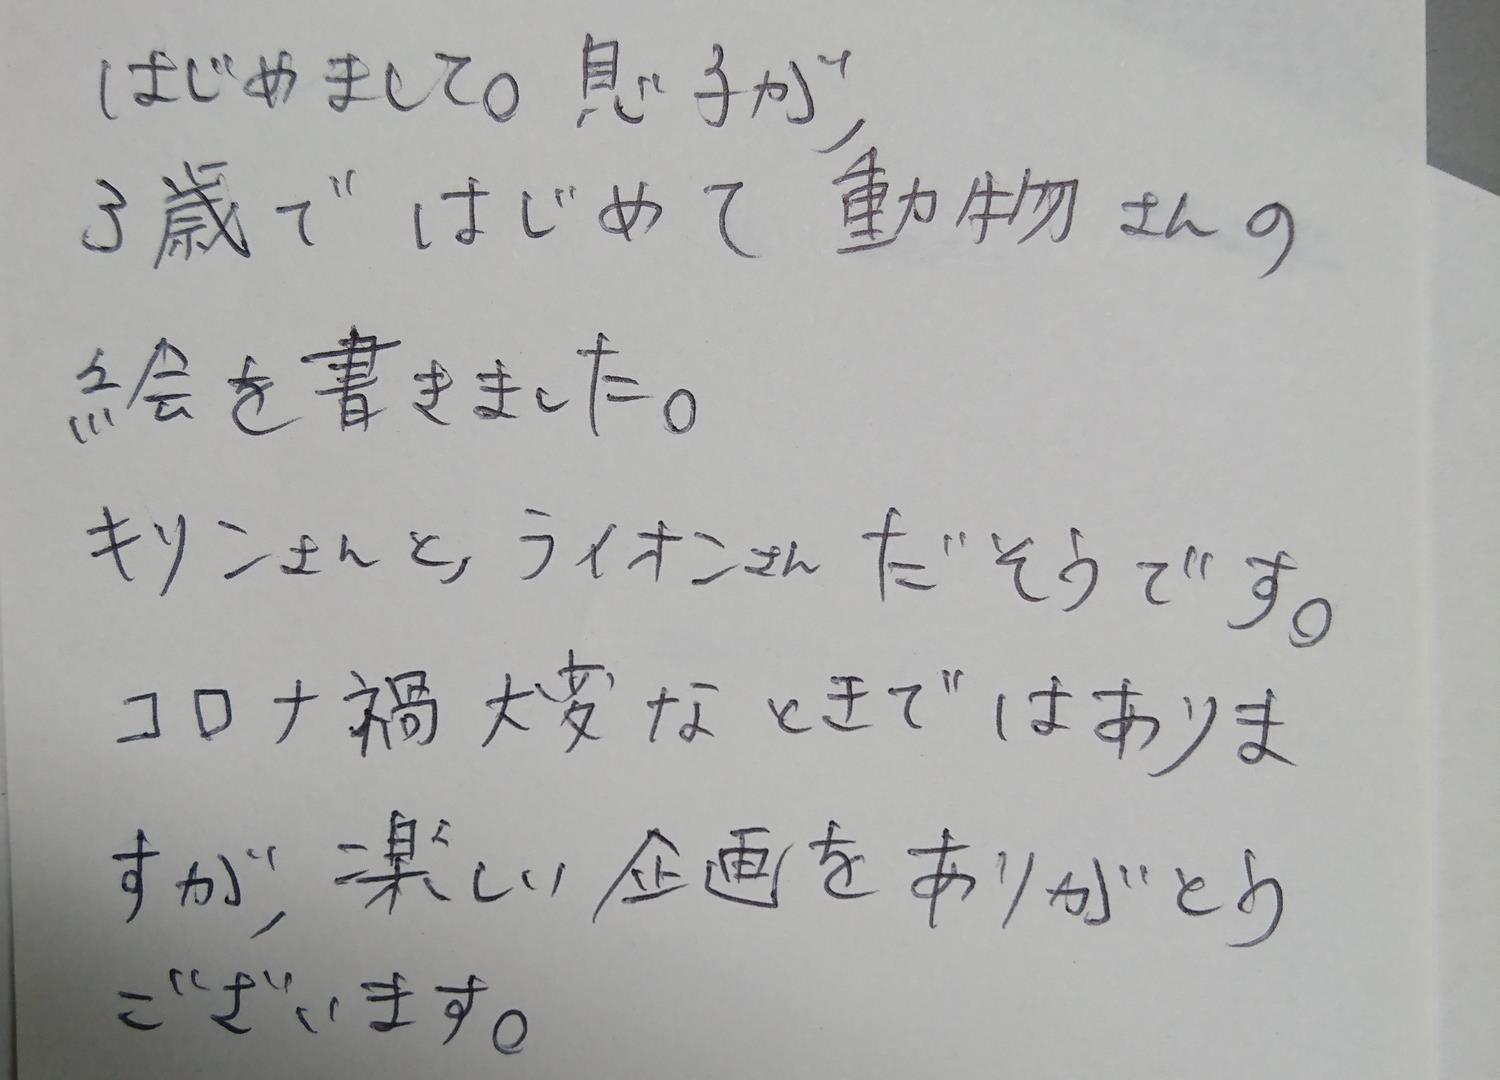 はじめまして。息子が、
3歳ではじめて動物さんの
絵を書きました。
キリンさんと、ライオンさんだそうです。
コロナ禍大変なときではありま
すが、楽しい企画をありがとう
ございます。